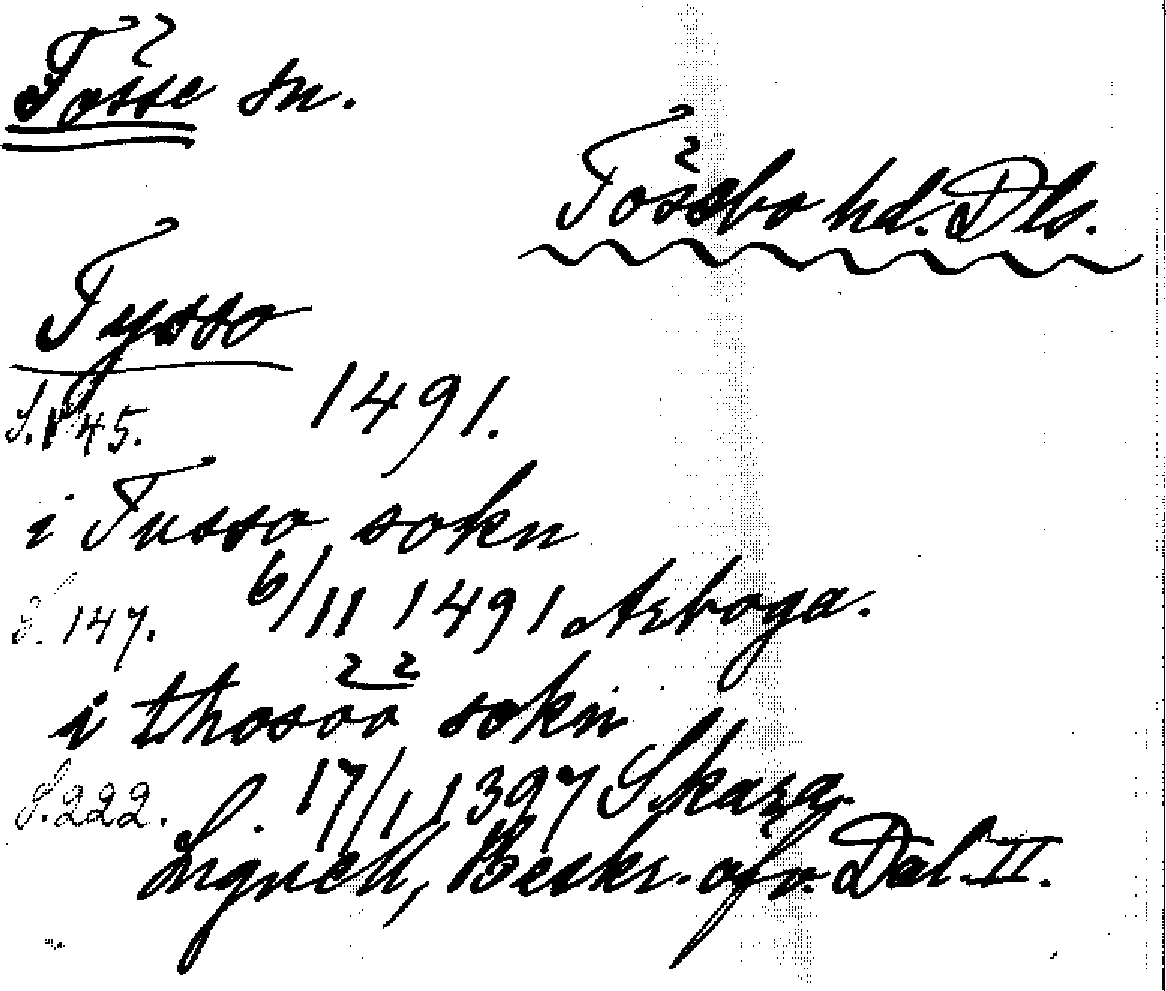 Tösse sn.
Tössbo hd. Dls.
Tysso
S. 145. 1491.
i Tusso sokn
S. 147. 6/11 1491 Arboga.
i thosöö sokn
S. 222. S. 17/1 1397 Skara.
Lignell, Beskr. öfv. Dal. II.